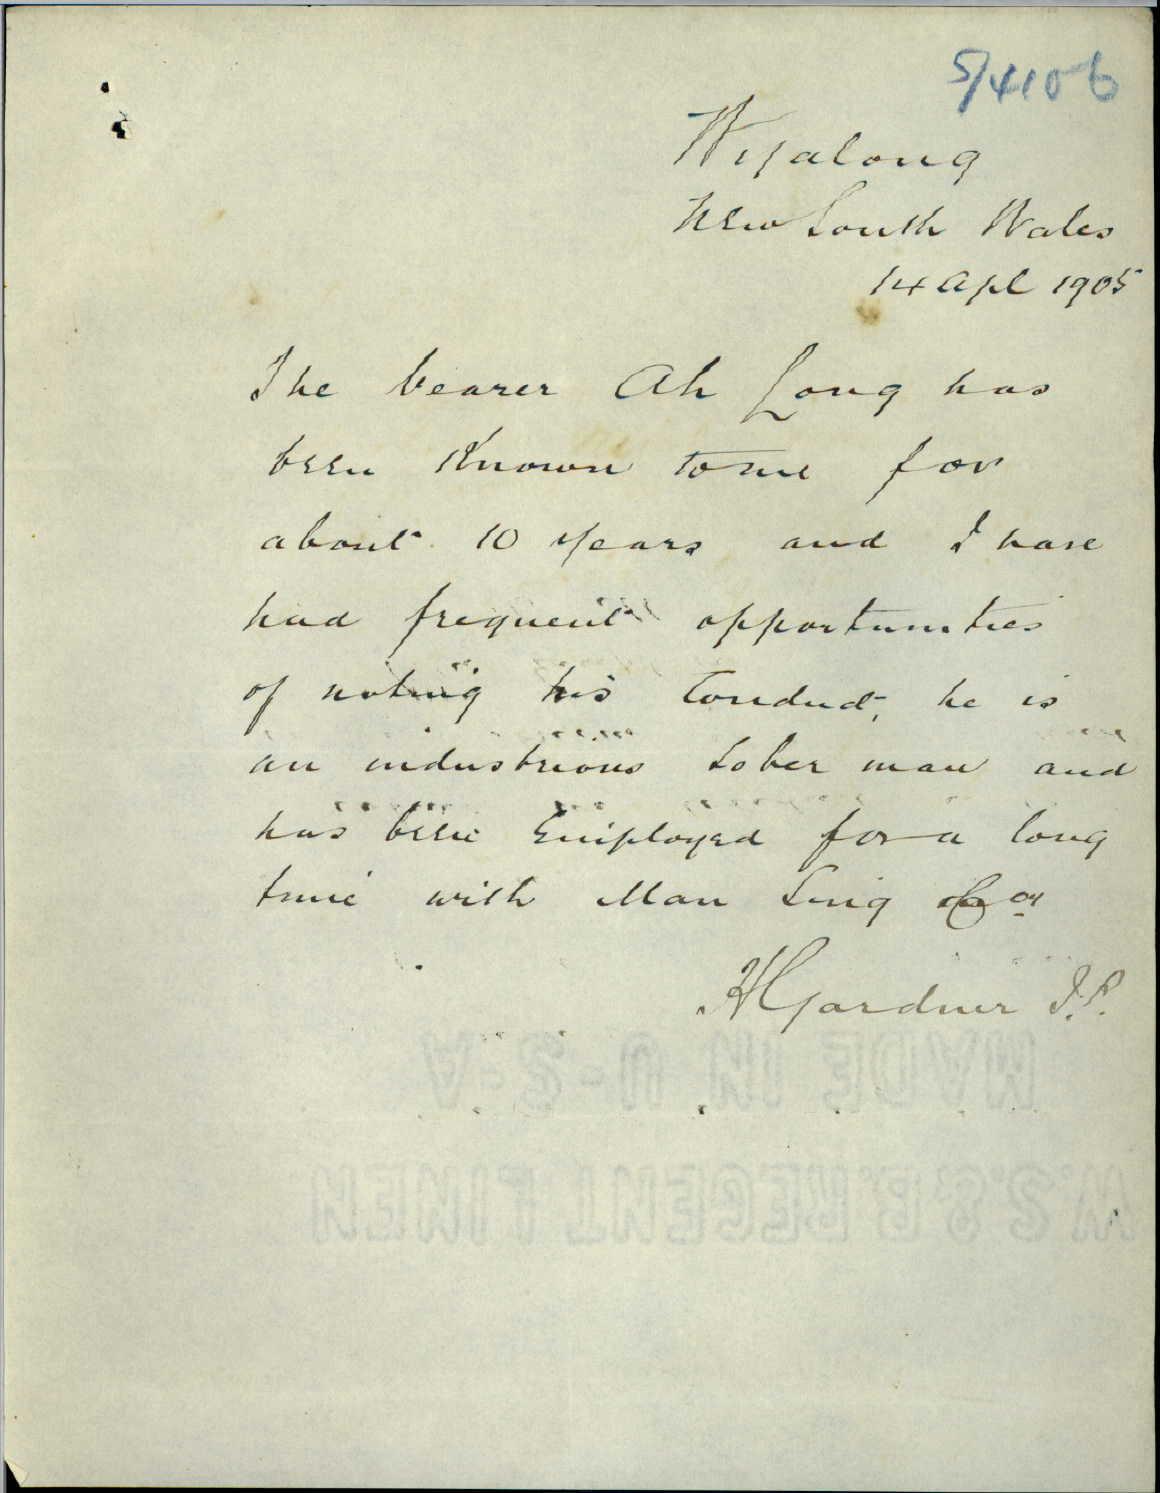 5/4106
Wyalong
New South Wales
14 Apl 1905
The bearer Ah Long has
been known to me for
about 10 years and I have
had frequent opportunities
of noting his conduct, he is
an industrious sober man and
has been employed for a long
time with Man Sing & Co
H Gardner J.P.
MADE IN U-S-A
W.S.& B. REGENT LINEN